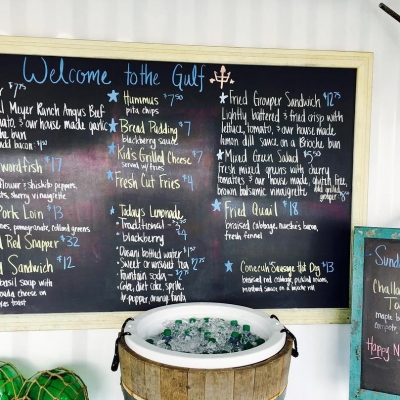 Welcome to the Gulf
$7.75
Meyer Ranch Angus Beef
tomato, & our house made garlic
bun
add bacon $1.00
swordfish $17
flower & shishito peppers,
sherry vinaigrette
Pork Loin $13
pomegranate, collard greens
Red Snapper $32
Sandwich $12
basil soup with
cheese on
toast
Hummus $7.50
pita chips
Bread Pudding $7
blackberry sauce
Kid's Grilled Cheese $7
served w/fries
Fresh Cut Fries $4
Todays Lemonade
- Traditional -
- blackberry $4
Dasani bottled water
Sweet or unsweet tea
Fountain soda -
Coke, diet coke, sprite,
dr-pepper, orange fanta
Fried Grouper Sandwich $12.75
Lightly battered & fried crisp with
lettuce, tomato, & our house made
lemon dill sauce on a Brioche bun
Mixed Green Salad $5.50
Fresh mixed greens with cherry
tomatoes & our house made,
brown balsamic vinaigrette
add grilled
grouper
Fried Quail $18
braised cabbage,
fresh fennel
Conecuh Sausage Hot Dog $13
braised red cabbage, pickled onions,
mustard sauce on a
Sund
Challa
To
maple
compote,
Happy N